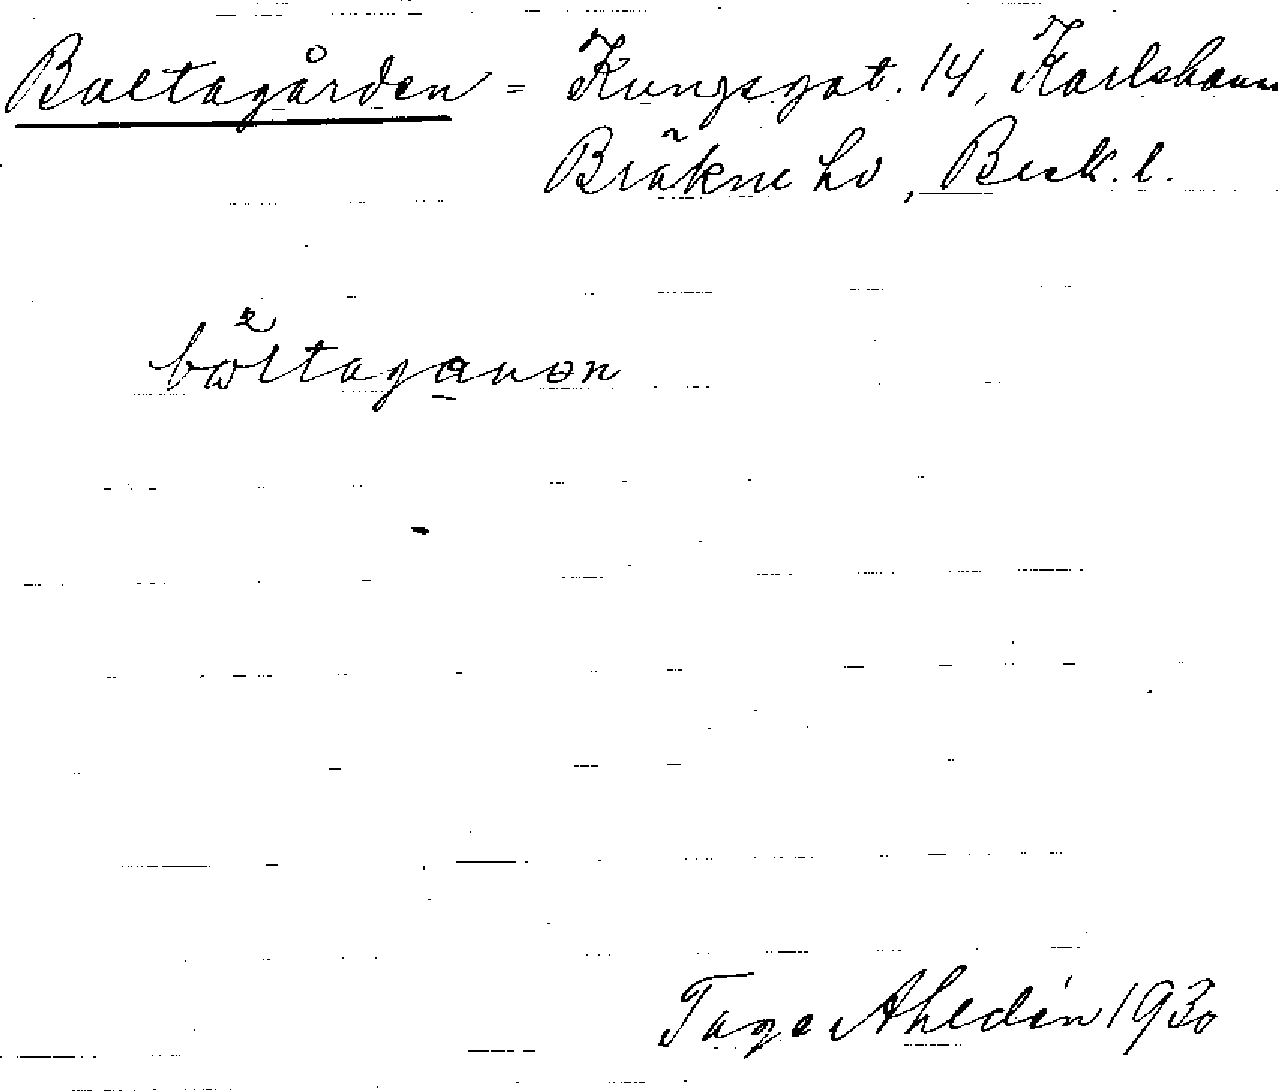 Baltagården = Kungsgat. 14, Karlshamn
Bräkne hd, Blek. l.
baltaganon
Tage Ahldén 1930